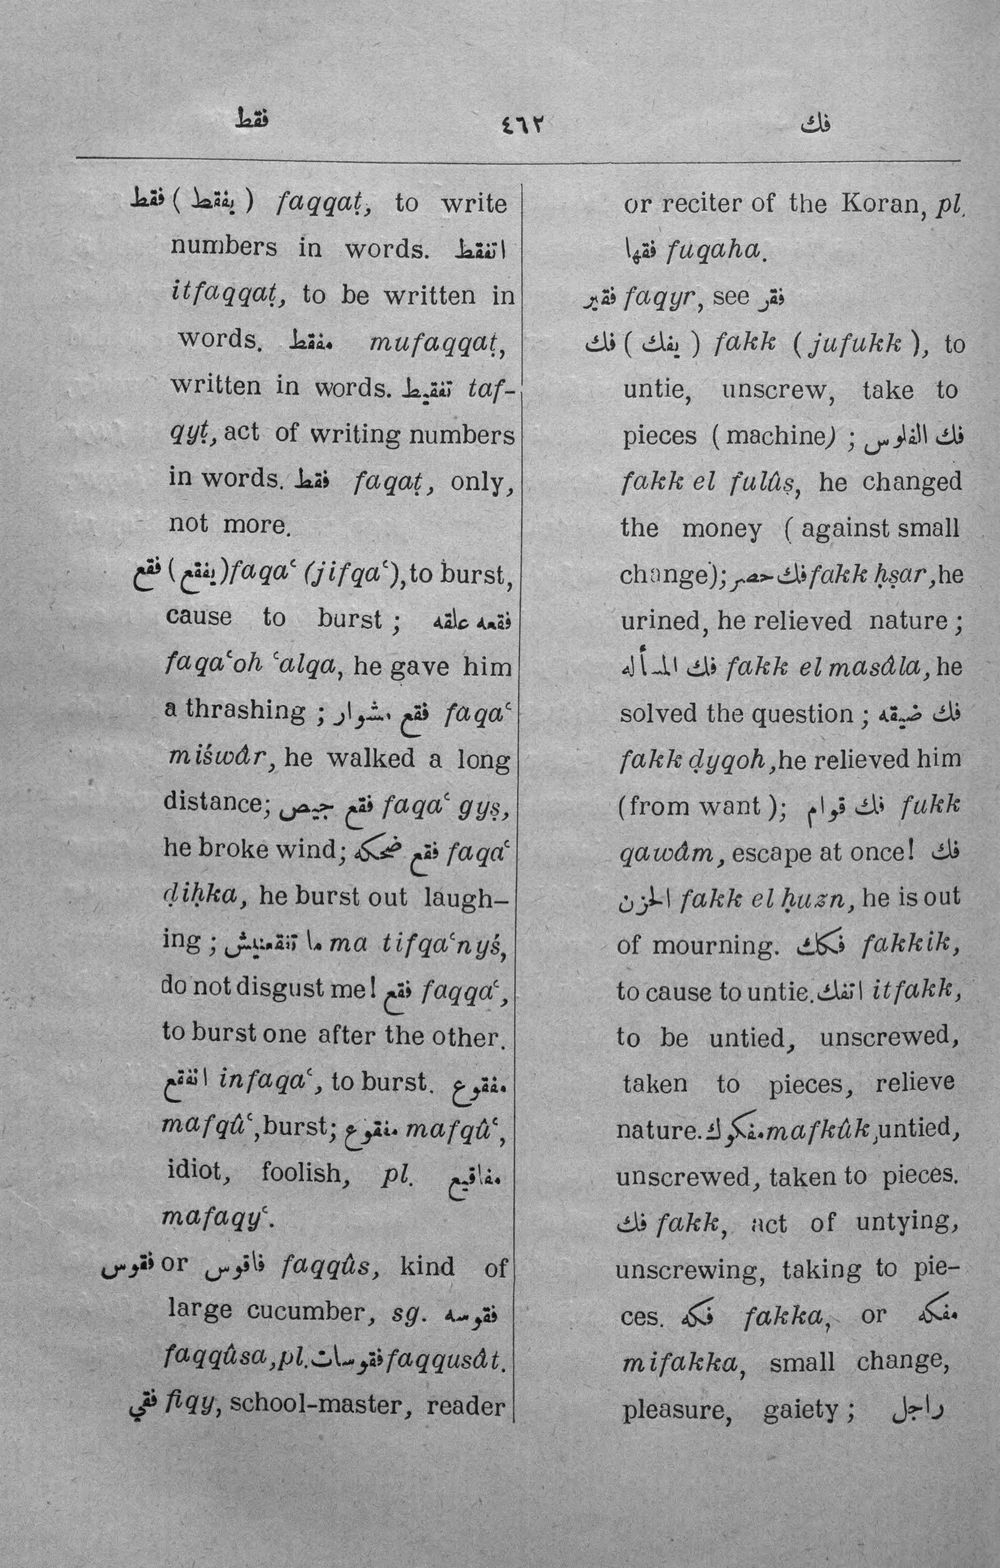 فقط ٤٦٢ فك
فقط ( يفقط ) faqqaṭ, to write
numbers in words. اتفقط
itfaqqaṭ, to be written in
words. مفقط mufaqqaṭ,
written in words. تفقيط taf-
qyṭ, act of writing numbers
in words. فقط faqaṭ, only,
not more.
فقع (يفقع) faqaʿ (jifqaʿ), to burst,
cause to burst ; فقعه علقه
faqaʿoh ʿalqa, he gave him
a thrashing ; فقع مشوار faqaʿ
miśwâr, he walked a long
distance; فقع جيص faqaʿ gyṣ,
he broke wind; فقع ضحكه faqaʿ
ḍiḥka, he burst out laugh-
ing ; ما تفقعنيش ma tifqaʿnyś,
do not disgust me! فقع faqqaʿ,
to burst one after the other.
انفقع infaqaʿ, to burst. مفقوع
mafqûʿ, burst; مفقوع mafqûʿ,
idiot, foolish, pl. مفاقيع
mafaqyʿ.
فقوس or فاقوس faqqûs, kind of
large cucumber, sg. فقوسه
faqqûsa, pl. فقوسات faqqusât.
فقي fiqy, school-master, reader
or reciter of the Koran, pl.
فقها fuqaha.
فقير faqyr, see فقر
فك ( يفك ) fakk ( jufukk ), to
untie, unscrew, take to
pieces ( machine) ; فك الفلوس
fakk el fulûṣ, he changed
the money ( against small
change); فك حصر fakk ḥṣar, he
urined, he relieved nature ;
فك المسأله fakk el masâla, he
solved the question ; فك ضيقه
fakk ḍyqoh, he relieved him
(from want ); فك قوام fukk
qawâm, escape at once! فك
الحزن fakk el ḥuzn, he is out
of mourning. فكك fakkik,
to cause to untie. اتفك itfakk,
to be untied, unscrewed,
taken to pieces, relieve
nature. مفكوك mafkûk, untied,
unscrewed, taken to pieces.
فك fakk, act of untying,
unscrewing, taking to pie-
ces. فكه fakka, or مفكه
mifakka, small change,
pleasure, gaiety ; راجل